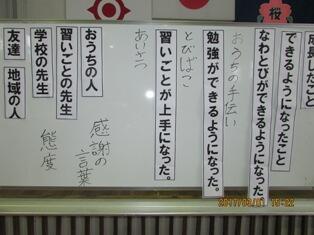 桜
成長したこと
できるようになったこと
なわとびができるようになった
おうちの手伝い
勉強ができるようになった。
とびばこ
習いごとが上手になった。
あいさつ
感謝の言葉
態度
おうちの人
習いごとの先生
学校の先生
友達 地域の人